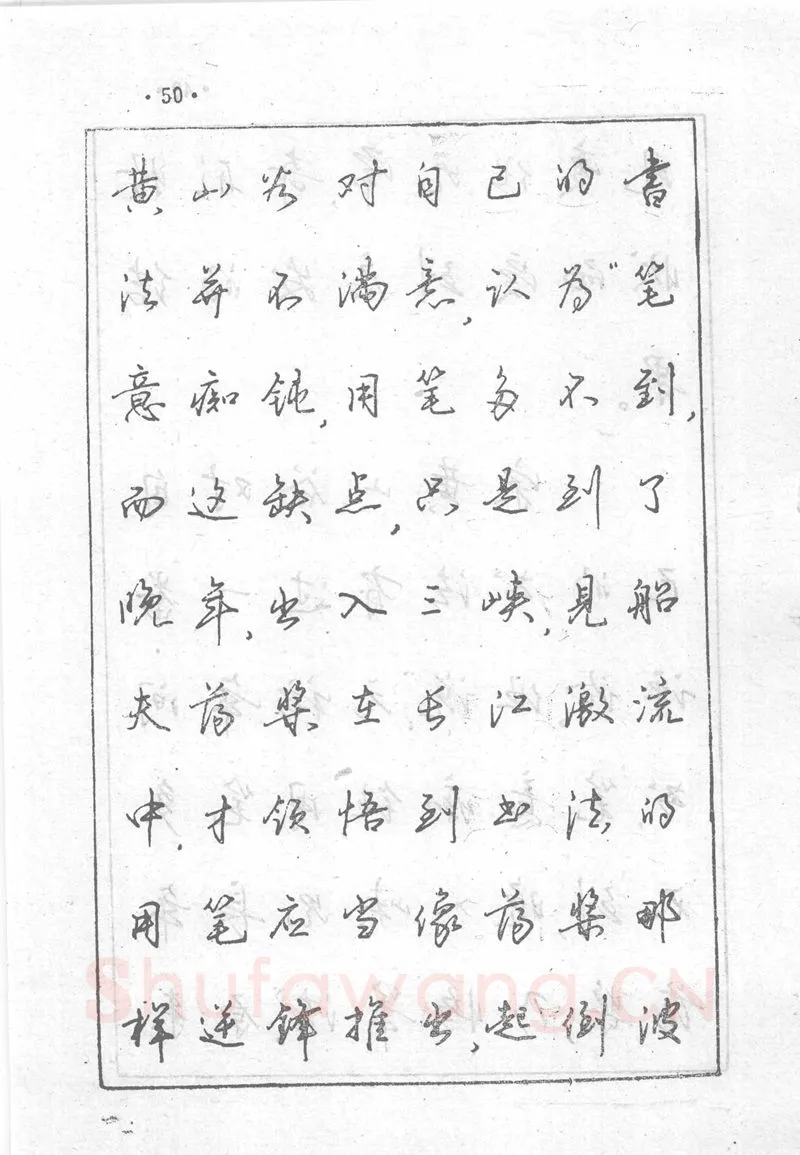 ·50·
黄山谷对自己的書
法并不满意,认为"笔
意痴钝,用笔多不到,
而这缺点,只是到了
晚年,出入三峡,見船
夫荡桨在长江激流
中,才领悟到书法的
用笔应当像荡桨那
样逆锋推出,起倒波
Shufawang.CN